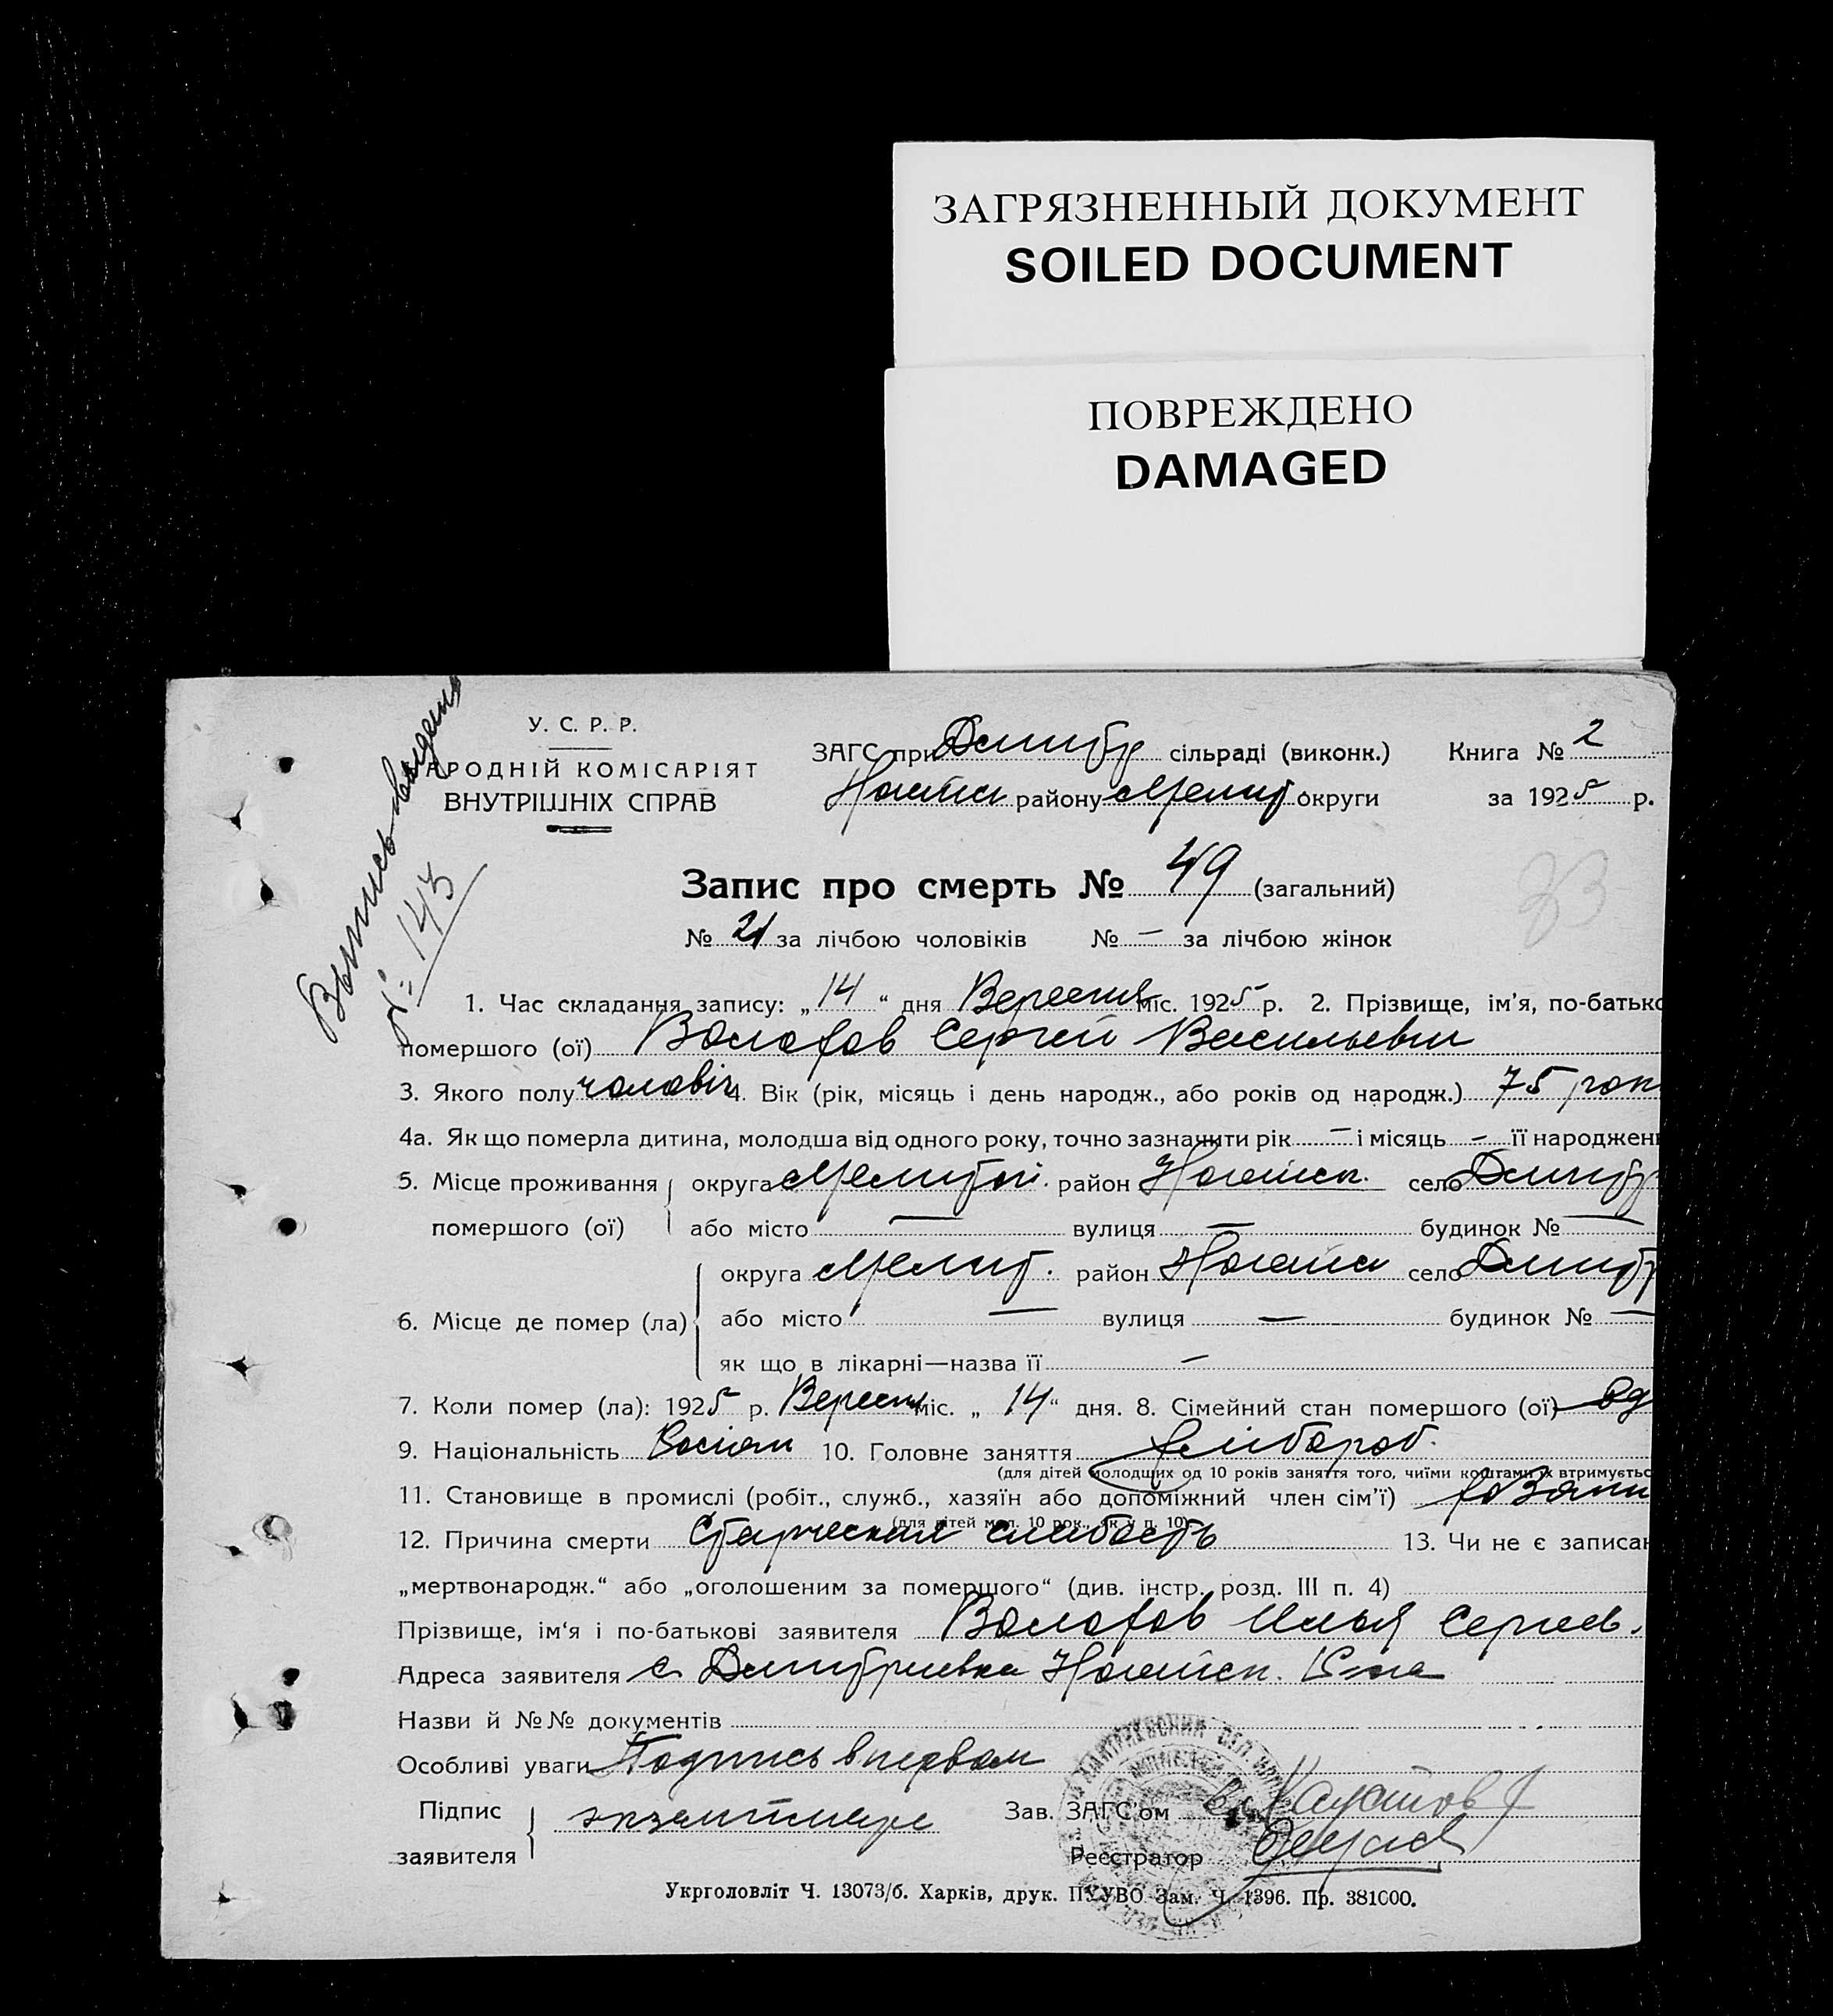 ЗАГРЯЗНЕННЫЙ ДОКУМЕНТ
SOILED DOCUMENT
ПОВРЕЖДЕНО
DAMAGED
Выпись выдена
№ 143
У. С. Р. Р.
АРОДНІЙ КОМІСАРІЯТ
ВНУТРІШНІХ СПРАВ
ЗАГС при Дмитр сільраді (виконк.) Книга № 2
Ногайск району Мелит округи за 1925 р.
Запис про смерть № 49 (загальний)
№ 21 за лічбою чоловіків № — за лічбою жінок
1. Час складання запису: „14“ дня Вересня міс. 1925 р. 2. Прізвище, ім'я, по-батько
помершого (ої) Волохов Сергей Васильевич
3. Якого полу чоловіч 4. Вік (рік, місяць і день народж., або років од народж.) 75 рок
4а. Як що померла дитина, молодша від одного року, точно зазначити рік — і місяць — її народжен
5. Місце проживання округа Мелитоп. район Ногайск. село Дмитр
помершого (ої) або місто — вулиця — будинок № —
округа Мелит. район Ногайск село Дмитр
6. Місце де помер (ла) або місто — вулиця — будинок № —
як що в лікарні—назва її —
7. Коли помер (ла): 1925 р. Вересня міс. „14“ дня. 8. Сімейний стан помершого (ої) вд
9. Національність Росіян 10. Головне заняття хлібороб.
(для дітей молодщих од 10 років заняття того, чиїми коштами їх втримуєтьс
11. Становище в промислі (робіт., служб., хазяїн або допоміжний член сім'ї) хозяин
(для дітей мол. 10 рок., як у п. 10)
12. Причина смерти Старческая слабость 13. Чи не є записан
„мертвонародж.“ або „оголошеним за помершого“ (див. інстр. розд. III п. 4)
Прізвище, ім'я і по-батькові заявителя Волохов Илья Сергеев.
Адреса заявителя с. Дмитриевка Ногайск. Р-на
Назви й №№ документів
Особливі уваги Подпись в первом
Підпис заявителя экземпляре Зав. ЗАГС'ом
Реєстратор
Укрголовліт Ч. 13073/б. Харків, друк. ПУУВО Зам. Ч. 1396. Пр. 381000.